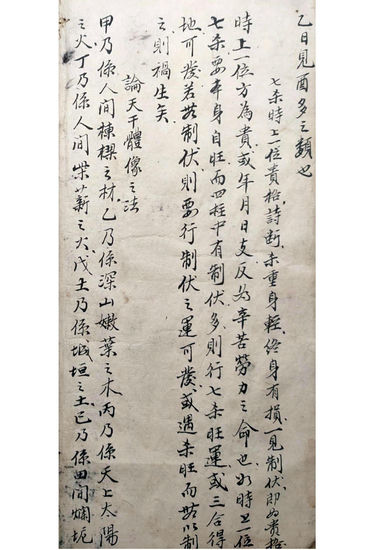 乙日見酉多之類也
七杀時上一位貴格詩断杀重身輕終身有損一見制伏即為貴格
時上一位方為貴或年月日支反為辛苦勞力之命也如時上一位
七杀要本身自旺而四柱中有制伏多則行七杀旺運或三合得
地可發若無制伏則要行制伏之運可發或遇杀旺而無以制
之則禍生矣
論天干體像之法
甲乃係人間棟樑之材乙乃係深山嫩葉之木丙乃係天上太陽
之火丁乃係人間柴薪之火戊土乃係城垣之土己乃係田間爛坭